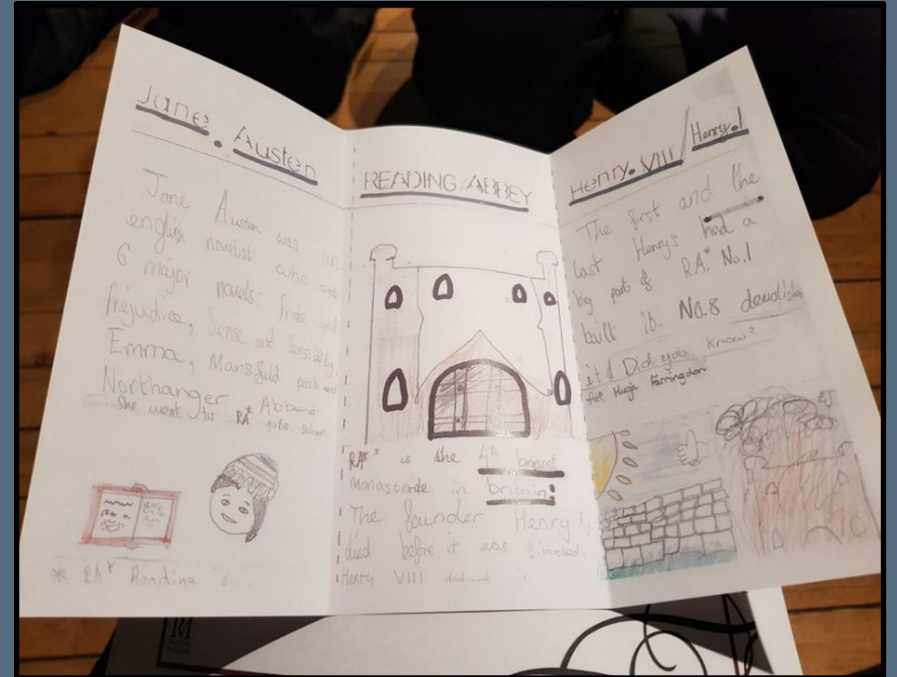 Jane. Austen
Jane Austen was an
english novelist who wrote
6 major novels: Pride and
Prejudice, Sense and Sensibility,
Emma, Mansfield park and
Northanger Abbey
She went to RA* gate school
* RA* Reading
READING/ABBEY
RA* is the 4th
in britain.
The founder Henry I,
died before it was
Henry VIII
Henry. VIII/Henry.I
The first and the
last Henry's had a
big part of RA*. No.1
built it. No.8
it! Did you know?
Hugh Farringdon